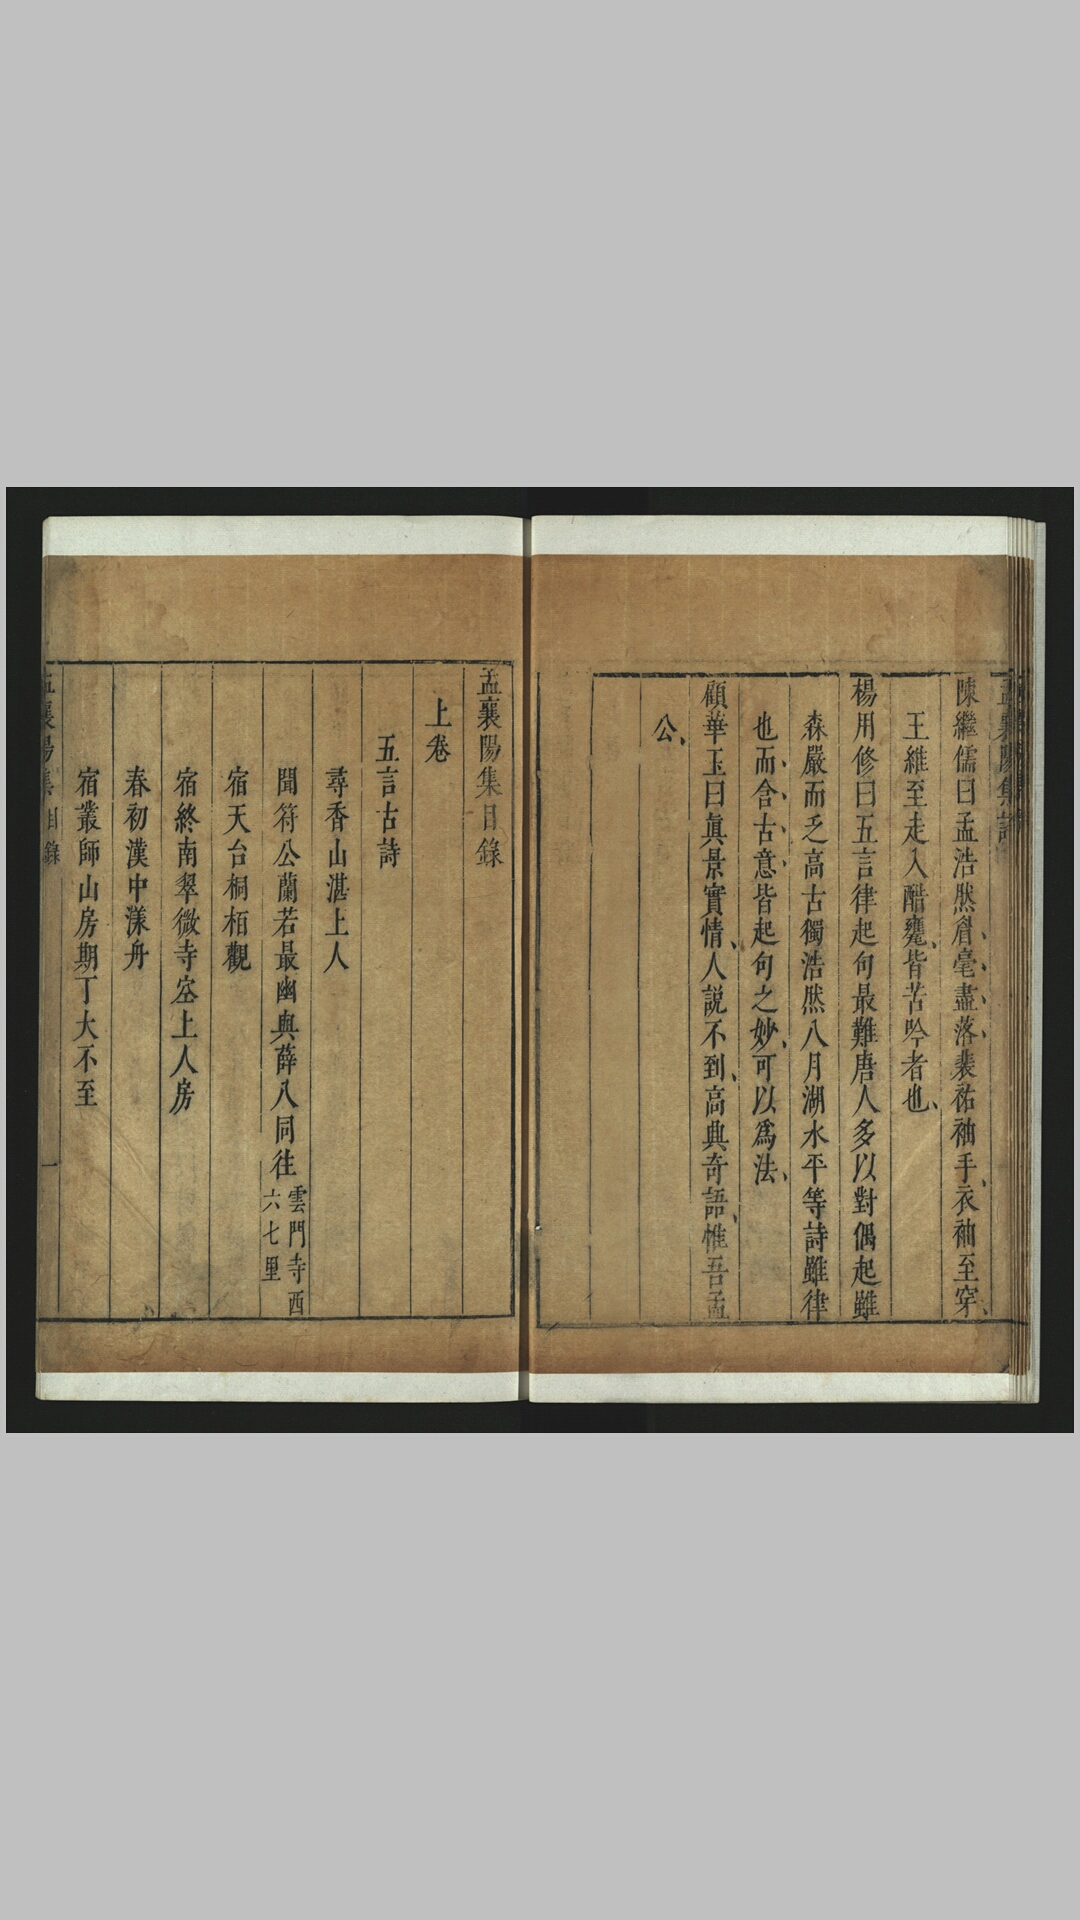 孟襄陽集
陳繼儒曰孟浩然眉毫盡落裴祐袖手衣袖至穿
王維至走入醋甕皆苦吟者也
楊用修曰五言律起句最難唐人多以對偶起雖
森嚴而乏高古獨浩然八月湖水平等詩雖律
也而含古意皆起句之妙可以爲法
顧華玉曰眞景實情人說不到高典奇語惟吾孟
公
孟襄陽集目錄
上卷
五言古詩
尋香山湛上人
聞符公蘭若最幽與薛八同往雲門寺西六七里
宿天台桐栢觀
宿終南翠微寺
春初漢中漾舟
宿叢師山房期丁大不至
孟襄陽集目錄 一